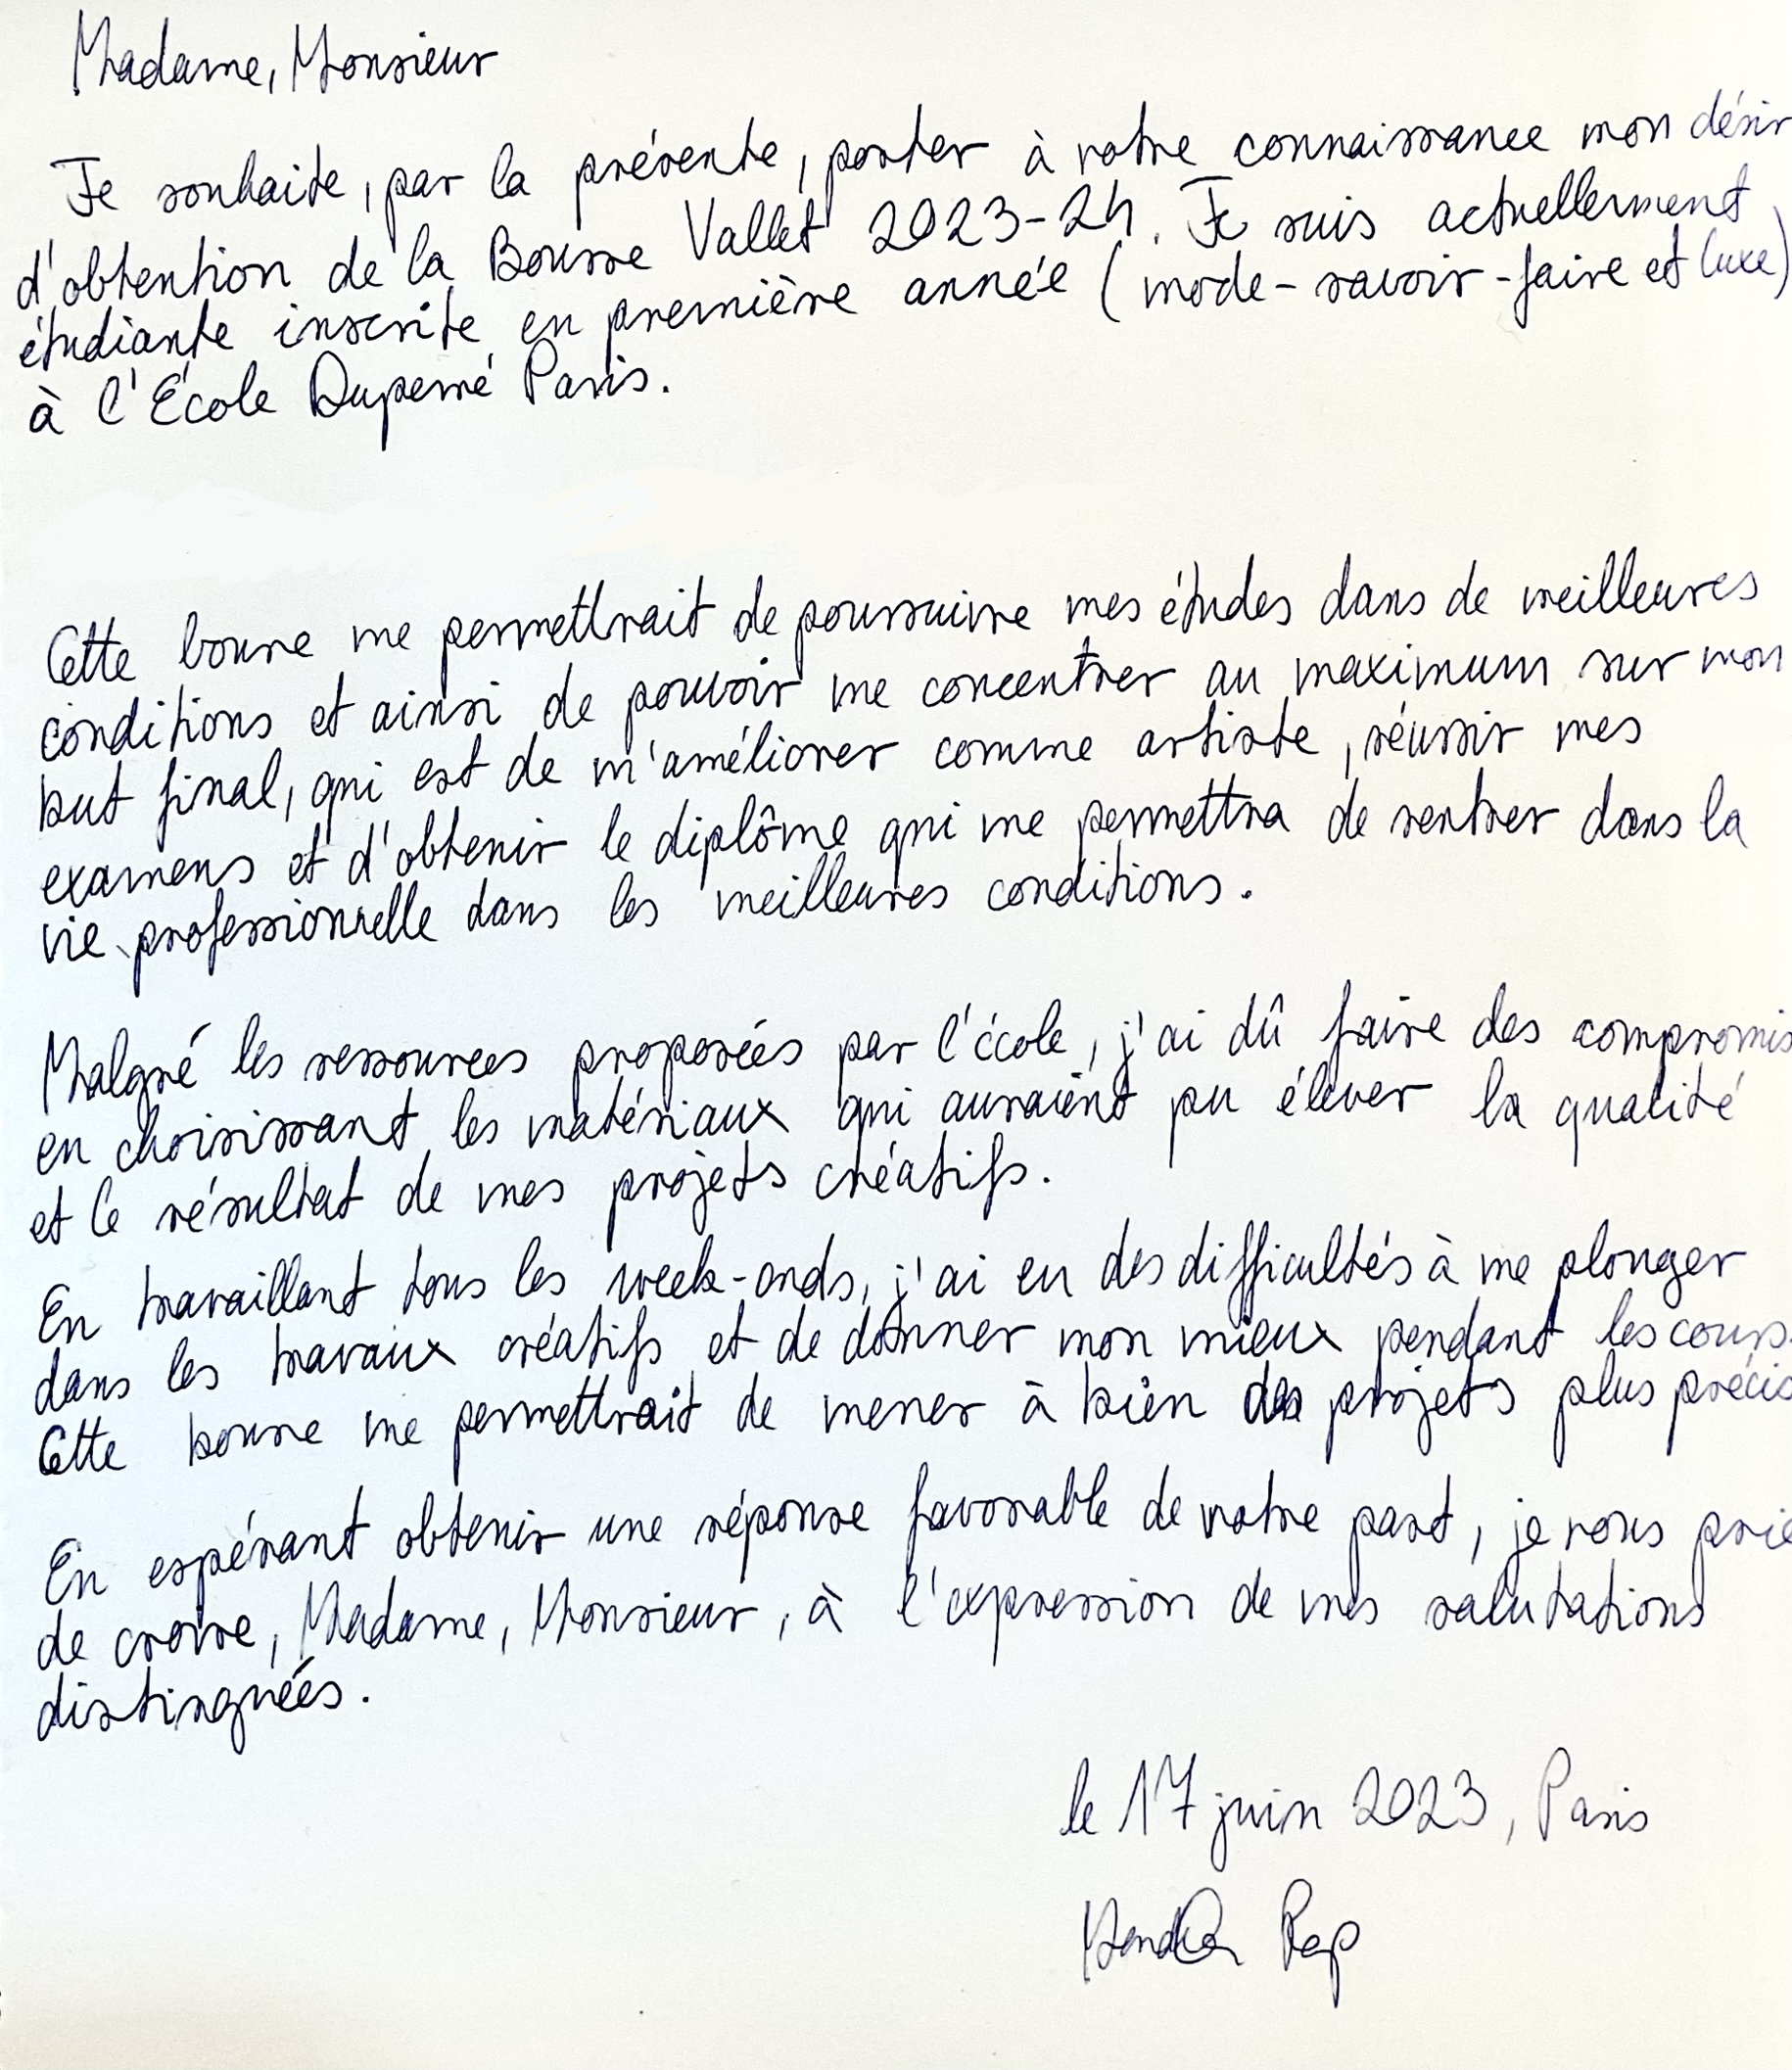 Madame, Monsieur
Je souhaite, par la présente, porter à votre connaissance mon désir
d'obtention de la Bourse Vallet 2023-24. Je suis actuellement
étudiante inscrite en première année (mode-savoir-faire et luxe)
à l'École Duperré Paris.
Cette bourse me permettrait de poursuivre mes études dans de meilleures
conditions et ainsi de pouvoir me concentrer au maximum sur mon
but final, qui est de m'améliorer comme artiste, réussir mes
examens et d'obtenir le diplôme qui me permettra de rentrer dans la
vie professionnelle dans les meilleures conditions.
Malgré les ressources proposées par l'école, j'ai dû faire des compromis
en choisissant les matériaux qui auraient pu élever la qualité
et le résultat de mes projets créatifs.
En travaillant tous les week-ends, j'ai eu des difficultés à me plonger
dans les travaux créatifs et de donner mon mieux pendant les cours.
Cette bourse me permettrait de mener à bien des projets plus précis
En espérant obtenir une réponse favorable de votre part, je vous prie
de croire, Madame, Monsieur, à l'expression de mes salutations
distinguées.
le 17 juin 2023, Paris